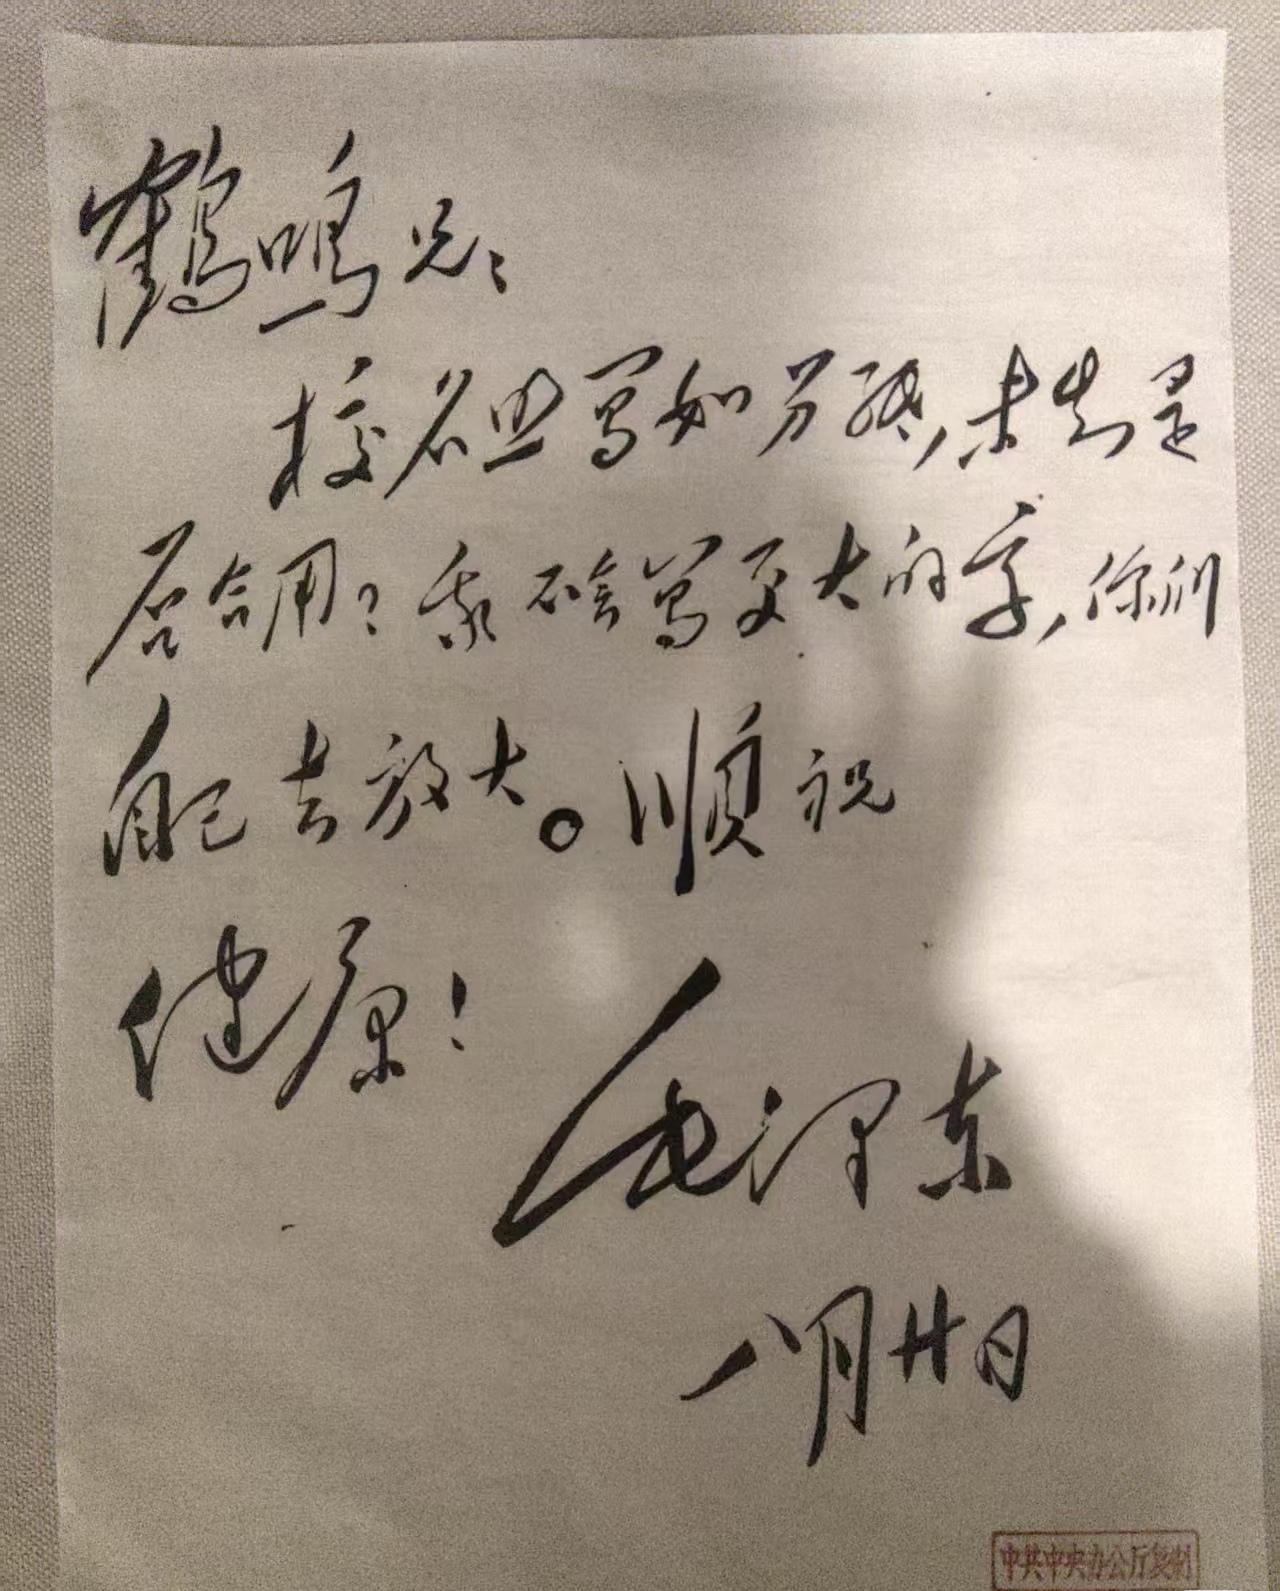 鹤鸣兄：
校名照写如另纸，未知是
否合用？我不会写更大的字，你们
自己去放大。顺祝
健康！
毛泽东
八月廿日
中共中央办公厅复制